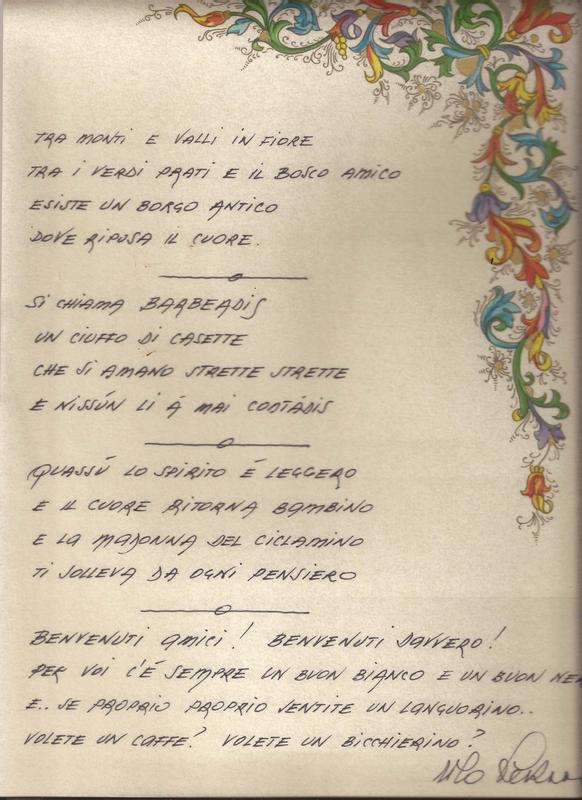 TRA MONTI E VALLI IN FIORE
TRA I VERDI PRATI E IL BOSCO AMICO
ESISTE UN BORGO ANTICO
DOVE RIPOSA IL CUORE.
SI CHIAMA BARBEADIS
UN CIUFFO DI CASETTE
CHE SI AMANO STRETTE STRETTE
E NISSÚN LI Á MAI CONTÁDIS
QUASSÚ LO SPIRITO É LEGGERO
E IL CUORE RITORNA BAMBINO
E LA MADONNA DEL CICLAMINO
TI SOLLEVA DA OGNI PENSIERO
BENVENUTI AMICI! BENVENUTI DAVVERO!
PER VOI C'É SEMPRE UN BUON BIANCO E UN BUON
E.. SE PROPRIO PROPRIO SENTITE UN LANGUORINO..
VOLETE UN CAFFE? VOLETE UN BICCHIERINO?